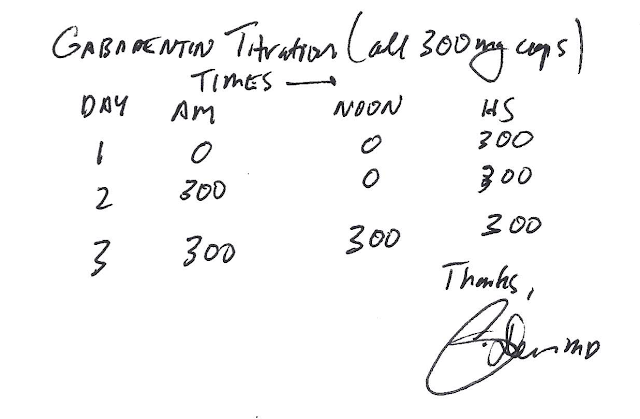 GABAPENTIN Titration (all 300mg caps)
TIMES →
DAY AM NOON HS
1 0 0 300
2 300 0 300
3 300 300 300
Thanks,
MD